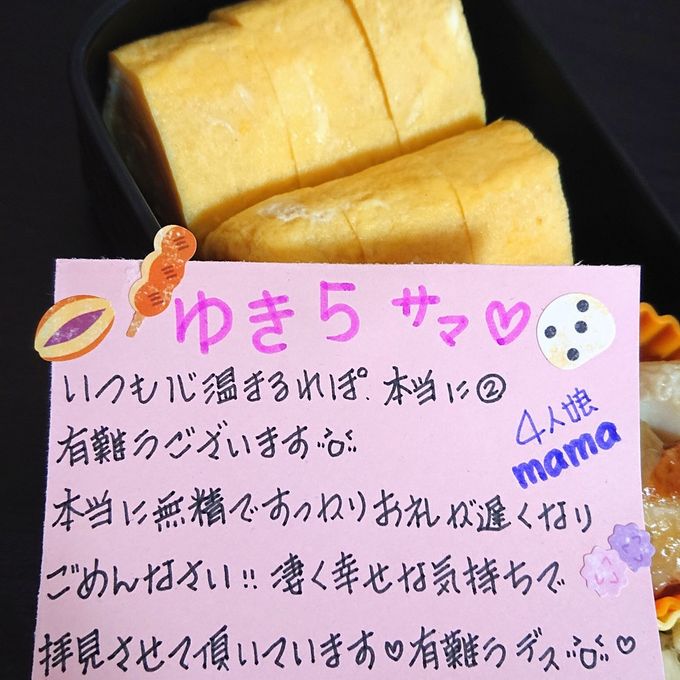 ゆきらサマ♡
いつも心温まるれぽ、本当に②
有難うございます
4人娘
mama
本当に無精ですっかりお礼が遅くなり
ごめんなさい!! 凄く幸せな気持ちで
拝見させて頂いています♡有難うデス♡